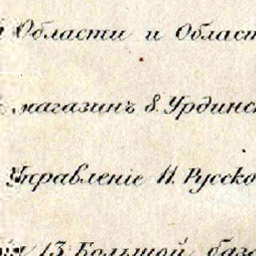 Области и Област
магазинъ 8. Урдинс
Управленіе 11. Русско
13 Большой база